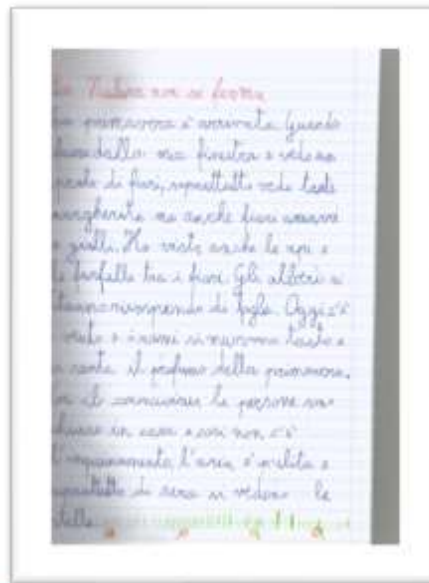 La Natura non si ferma
La primavera è arrivata. Guardo
fuori dalla mia finestra e vedo un
prato di fiori, soprattutto vedo tante
margherite ma anche fiori
e gialli. Ho visto anche le api e
le farfalle tra i fiori. Gli alberi si
stanno riempendo di foglie. Oggi c'è
vento e i rami si muovono tanto e
si sente il profumo della primavera.
le persone sono
chiuse in casa e così non c'è
l'inquinamento, l'aria è pulita e
soprattutto di sera si vedono le
stelle